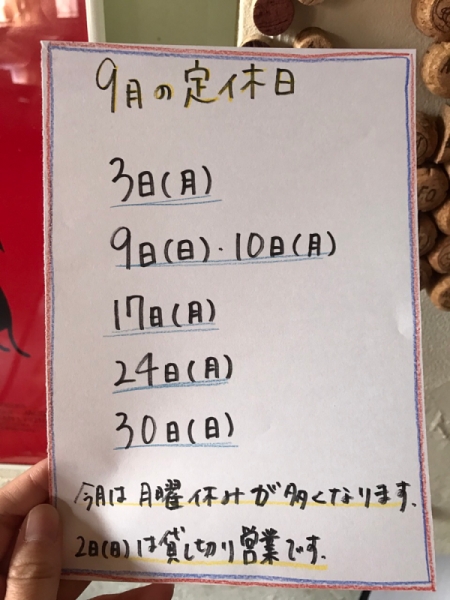 9月の定休日
3日(月)
9日(日)・10日(月)
17日(月)
24日(月)
30日(日)
今月は月曜休みが多くなります.
2日(日)は貸し切り営業です.